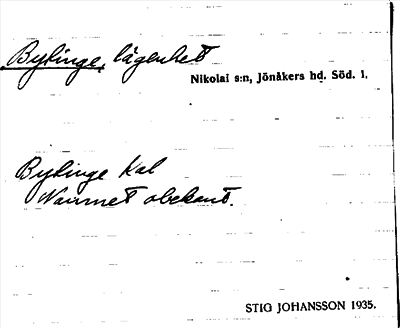 Bylinge, lägenhet
Nikolai s:n, Jönåkers hd. Söd. l.
Bylinge Kal
Namnet obekant.
STIG JOHANSSON 1935.